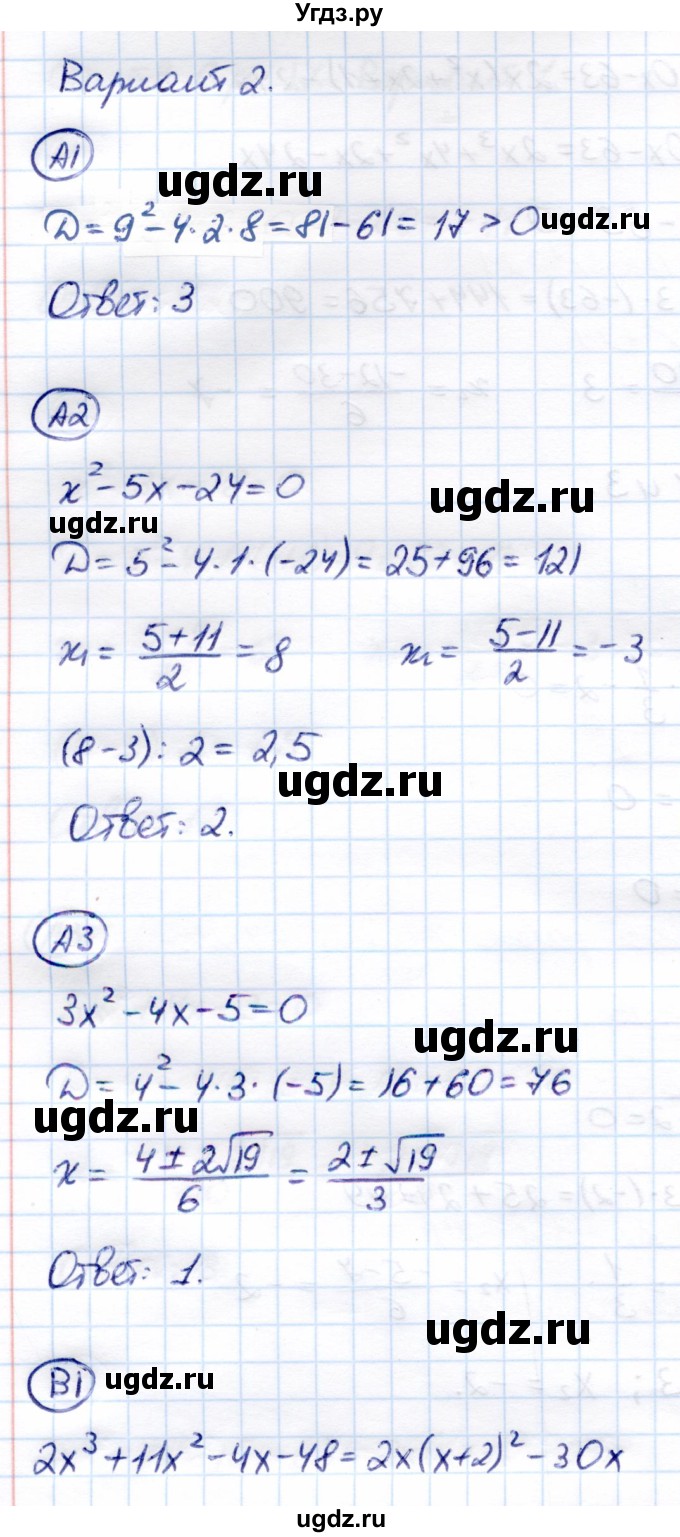 Угдз.ру
Вариант 2.
A1
ugdz.ru
D = 9² - 4·2·8 = 81 - 61 = 17 > 0
ugdz.ru
Ответ: 3
A2
x² - 5x - 24 = 0
ugdz.ru
ugdz.ru
D = 5² - 4·1·(-24) = 25 + 96 = 121
x₁ = (5+11)/2 = 8 x₂ = (5-11)/2 = -3
(8-3) : 2 = 2,5
ugdz.ru
Ответ: 2.
A3
3x² - 4x - 5 = 0
ugdz.ru
D = 4² - 4·3·(-5) = 16 + 60 = 76
ugdz.ru
x = (4 ± 2√19)/6 = (2 ± √19)/3
Ответ: 1.
ugdz.ru
B1
ugdz.ru
2x³ + 11x² - 4x - 48 = 2x(x+2)² - 30x
ugdz.ru